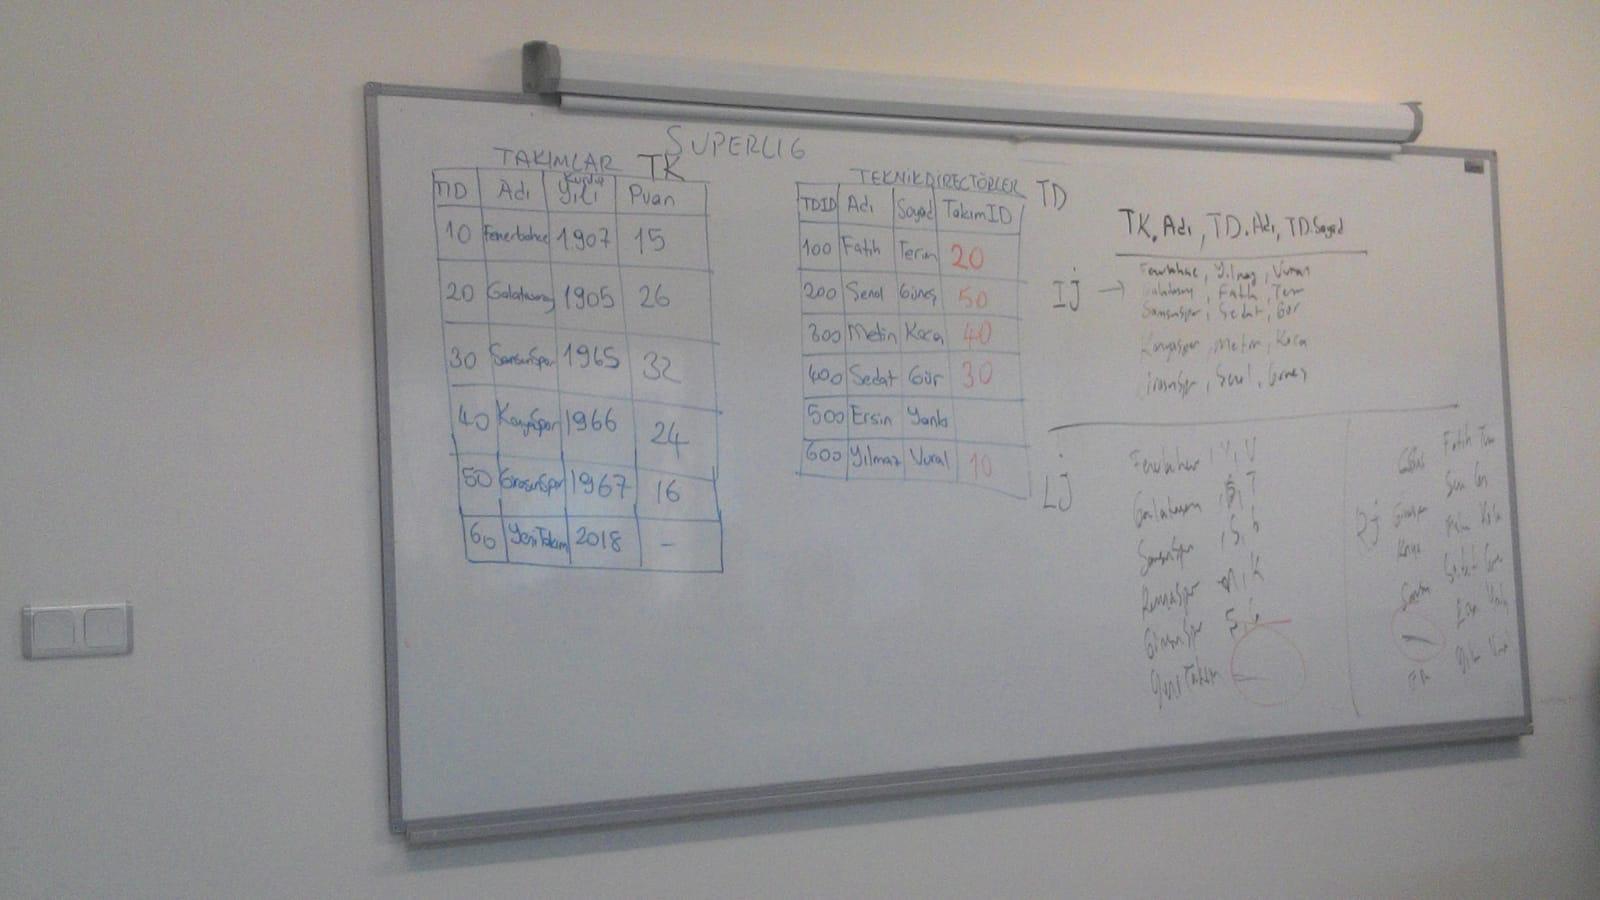 SUPERLIG
TAKIMLAR TK
TID Adı Kuruluş Yılı Puan
10 Fenerbahce 1907 15
20 Galatasaray 1905 26
30 SamsunSpor 1965 32
40 KonyaSpor 1966 24
50 GiresunSpor 1967 16
60 Yeni Takım 2018 -
TEKNİKDİRECTÖRLER TD
TDID Adı Soyad TakımID
100 Fatih Terim 20
200 Senol Güneş 50
300 Metin Koca 40
400 Sedat Gür 30
500 Ersin
600 Yılmaz Vural 10
TK.Adı, TD.Adı, TD.Soyad
IJ →
Fenerbahce, Yılmaz, Vural
Galatasaray, Fatih, Terim
SamsunSpor, Sedat, Gür
Konyaspor, Metin, Koca
GiresunSpor, Senol, Güneş
LJ
Fenerbahce, Y, V
Galatasaray, T
SamsunSpor, S, G
M, K
GiresunSpor S, G
Yeni Takım —
RJ
Fatih
Konya
—